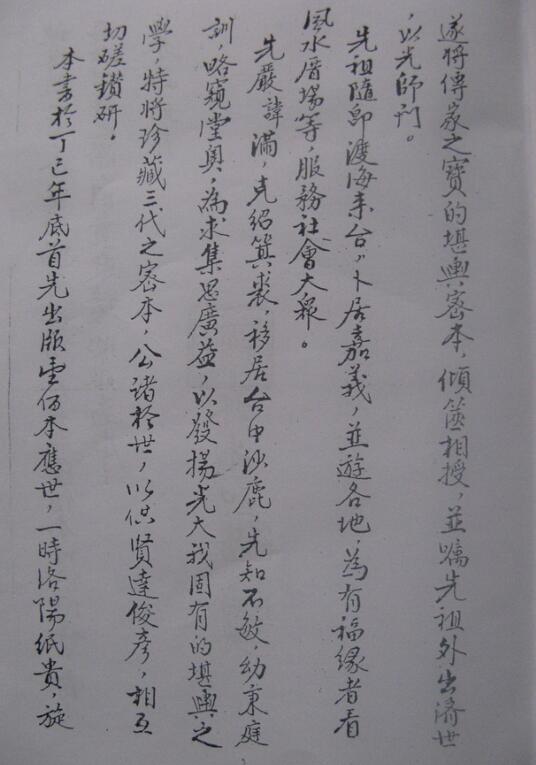 遂將傳家之寶的堪輿密本，傾篋相授，並囑先祖外出濟世
，以光師門。
先祖隨即渡海來台，卜居嘉義，並遊各地，為有福緣者看
風水厝場等，服務社會大眾。
先嚴諱滿，克紹箕裘，移居台中沙鹿，先知不敏，幼秉庭
訓，略窺堂奧，為求集思廣益，以發揚光大我固有的堪輿之
學，特將珍藏三代之密本，公諸於世，以供賢達俊彥，相互
切磋鑽研。
本書於丁巳年底首先出版壹佰本應世，一時洛陽紙貴，旋